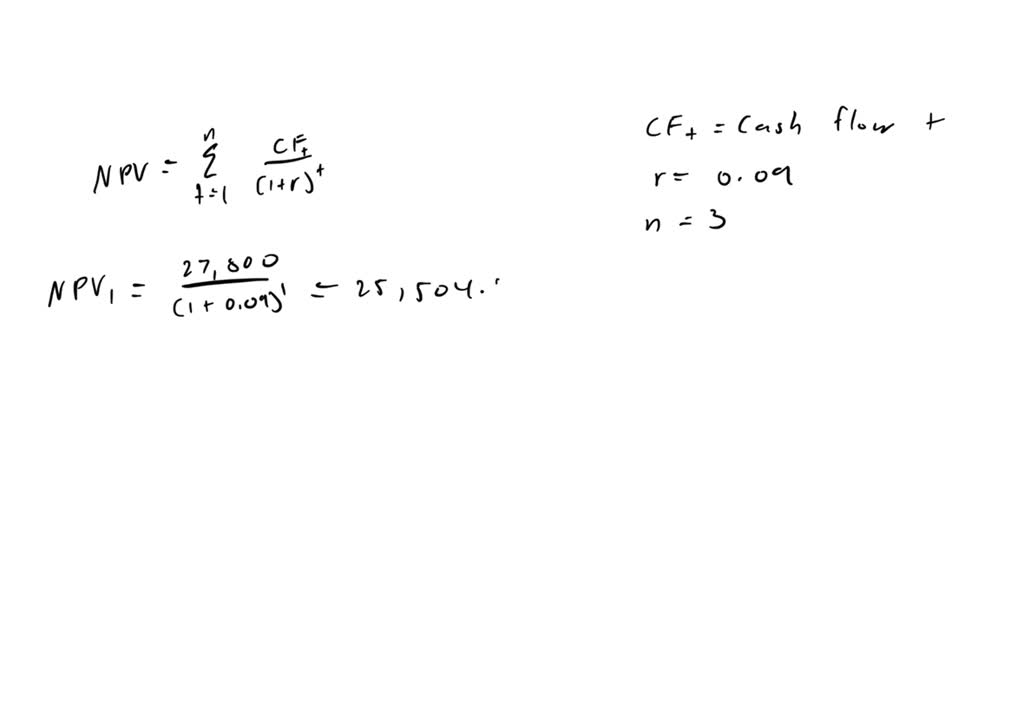 NPV = n Σ t=1 CFt / (1+r)^t
CFt = Cash flow t
r = 0.09
n = 3
NPV1 = 27,800 / (1 + 0.09)^1 = 25,504.